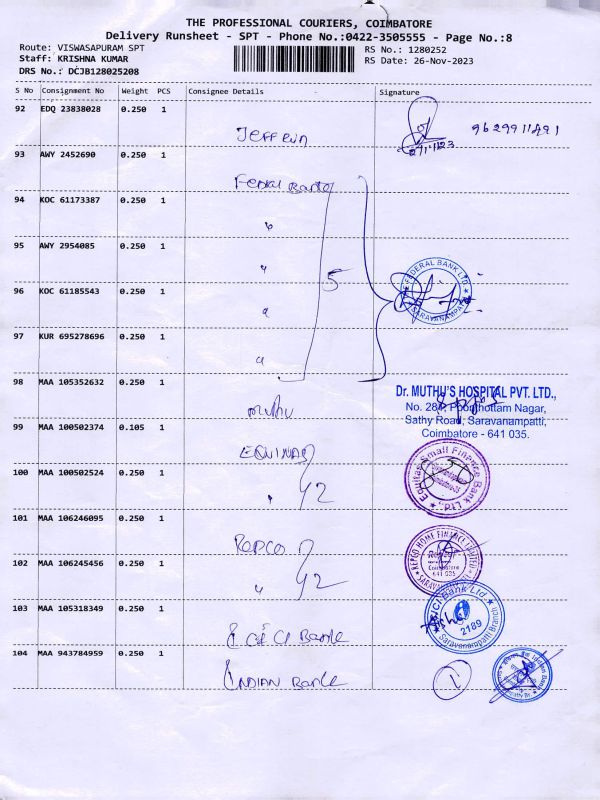 THE PROFESSIONAL COURIERS, COIMBATORE
Delivery Runsheet - SPT - Phone No.:0422-3505555 - Page No.:8
Route: VISWASAPURAM SPT
RS No.: 1280252
Staff: KRISHNA KUMAR
RS Date: 26-Nov-2023
DRS No.: DCJB128025208
S No Consignment No Weight PCS Consignee Details Signature
92 EDQ 23838028 0.250 1
Jeffrin
9629911491
93 AWY 2452690 0.250 1
94 KOC 61173387 0.250 1
95 AWY 2954085 0.250 1
5
FEDERAL BANK LTD.
SARAVANAMPATTI
96 KOC 61185543 0.250 1
97 KUR 695278696 0.250 1
98 MAA 105352632 0.250 1
Muthu
Dr. MUTHU'S HOSPITAL PVT. LTD.,
No. 284, Poonthottam Nagar,
Sathy Road, Saravanampatti,
Coimbatore - 641 035.
99 MAA 100502374 0.105 1
100 MAA 100502524 0.250 1
Equitas Small Finance Bank Ltd.,
101 MAA 106246095 0.250 1
REPCO
REPCO HOME FINANCE LIMITED
Coimbatore
641 035
102 MAA 106245456 0.250 1
103 MAA 105318349 0.250 1
ICICI Bank
ICICI Bank Ltd
2189
Saravanampatti Branch
104 MAA 943784959 0.250 1
INDIAN Bank